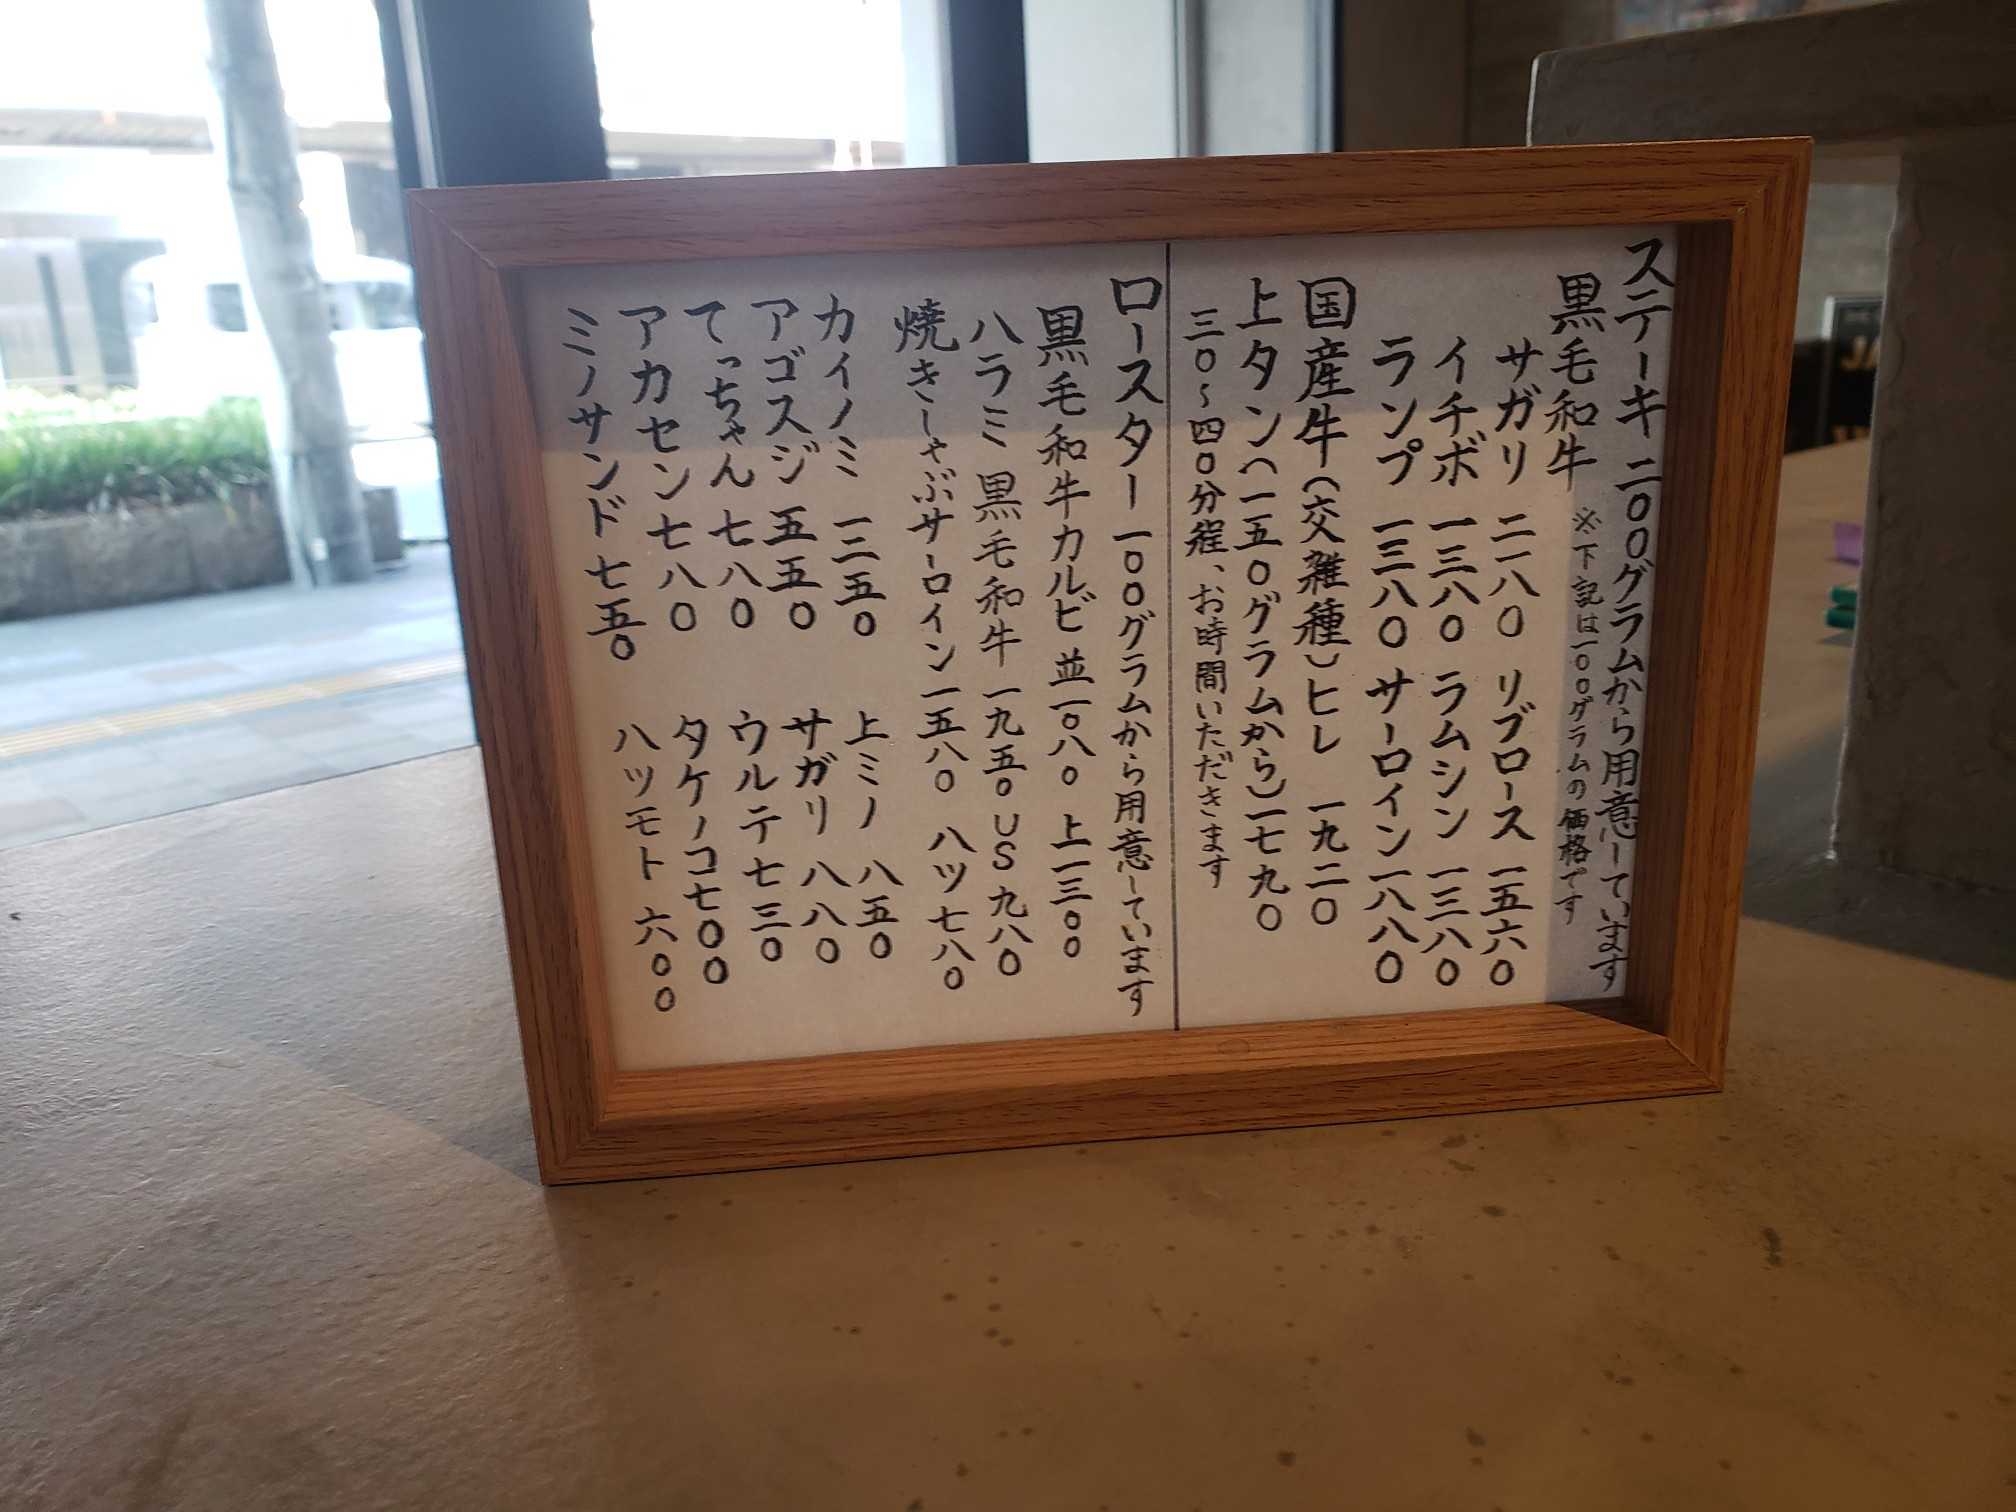 ステーキ 二〇〇グラムから用意しています
黒毛和牛 ※下記は一〇〇グラムの価格です
サガリ 二一八〇 リブロース 一五六〇
イチボ 一三八〇 ラムシン 一三八〇
ランプ 一三八〇 サーロイン 一八八〇
国産牛(交雑種)ヒレ 一九二〇
上タン(一五〇グラムから)一七九〇
三〇〜四〇分程、お時間いただきます
ロースター 一〇〇グラムから用意しています
黒毛和牛カルビ 並一〇八〇 上一三〇〇
ハラミ 黒毛和牛 一九五〇 US 九八〇
焼きしゃぶサーロイン 一五八〇 ハツ 七八〇
カイノミ 一三五〇 上ミノ 八五〇
アゴスジ 五五〇 サガリ 八八〇
てっちゃん 七八〇 ウルテ 七三〇
アカセン 七八〇 タケノコ 七〇〇
ミノサンド 七五〇 ハツモト 六〇〇